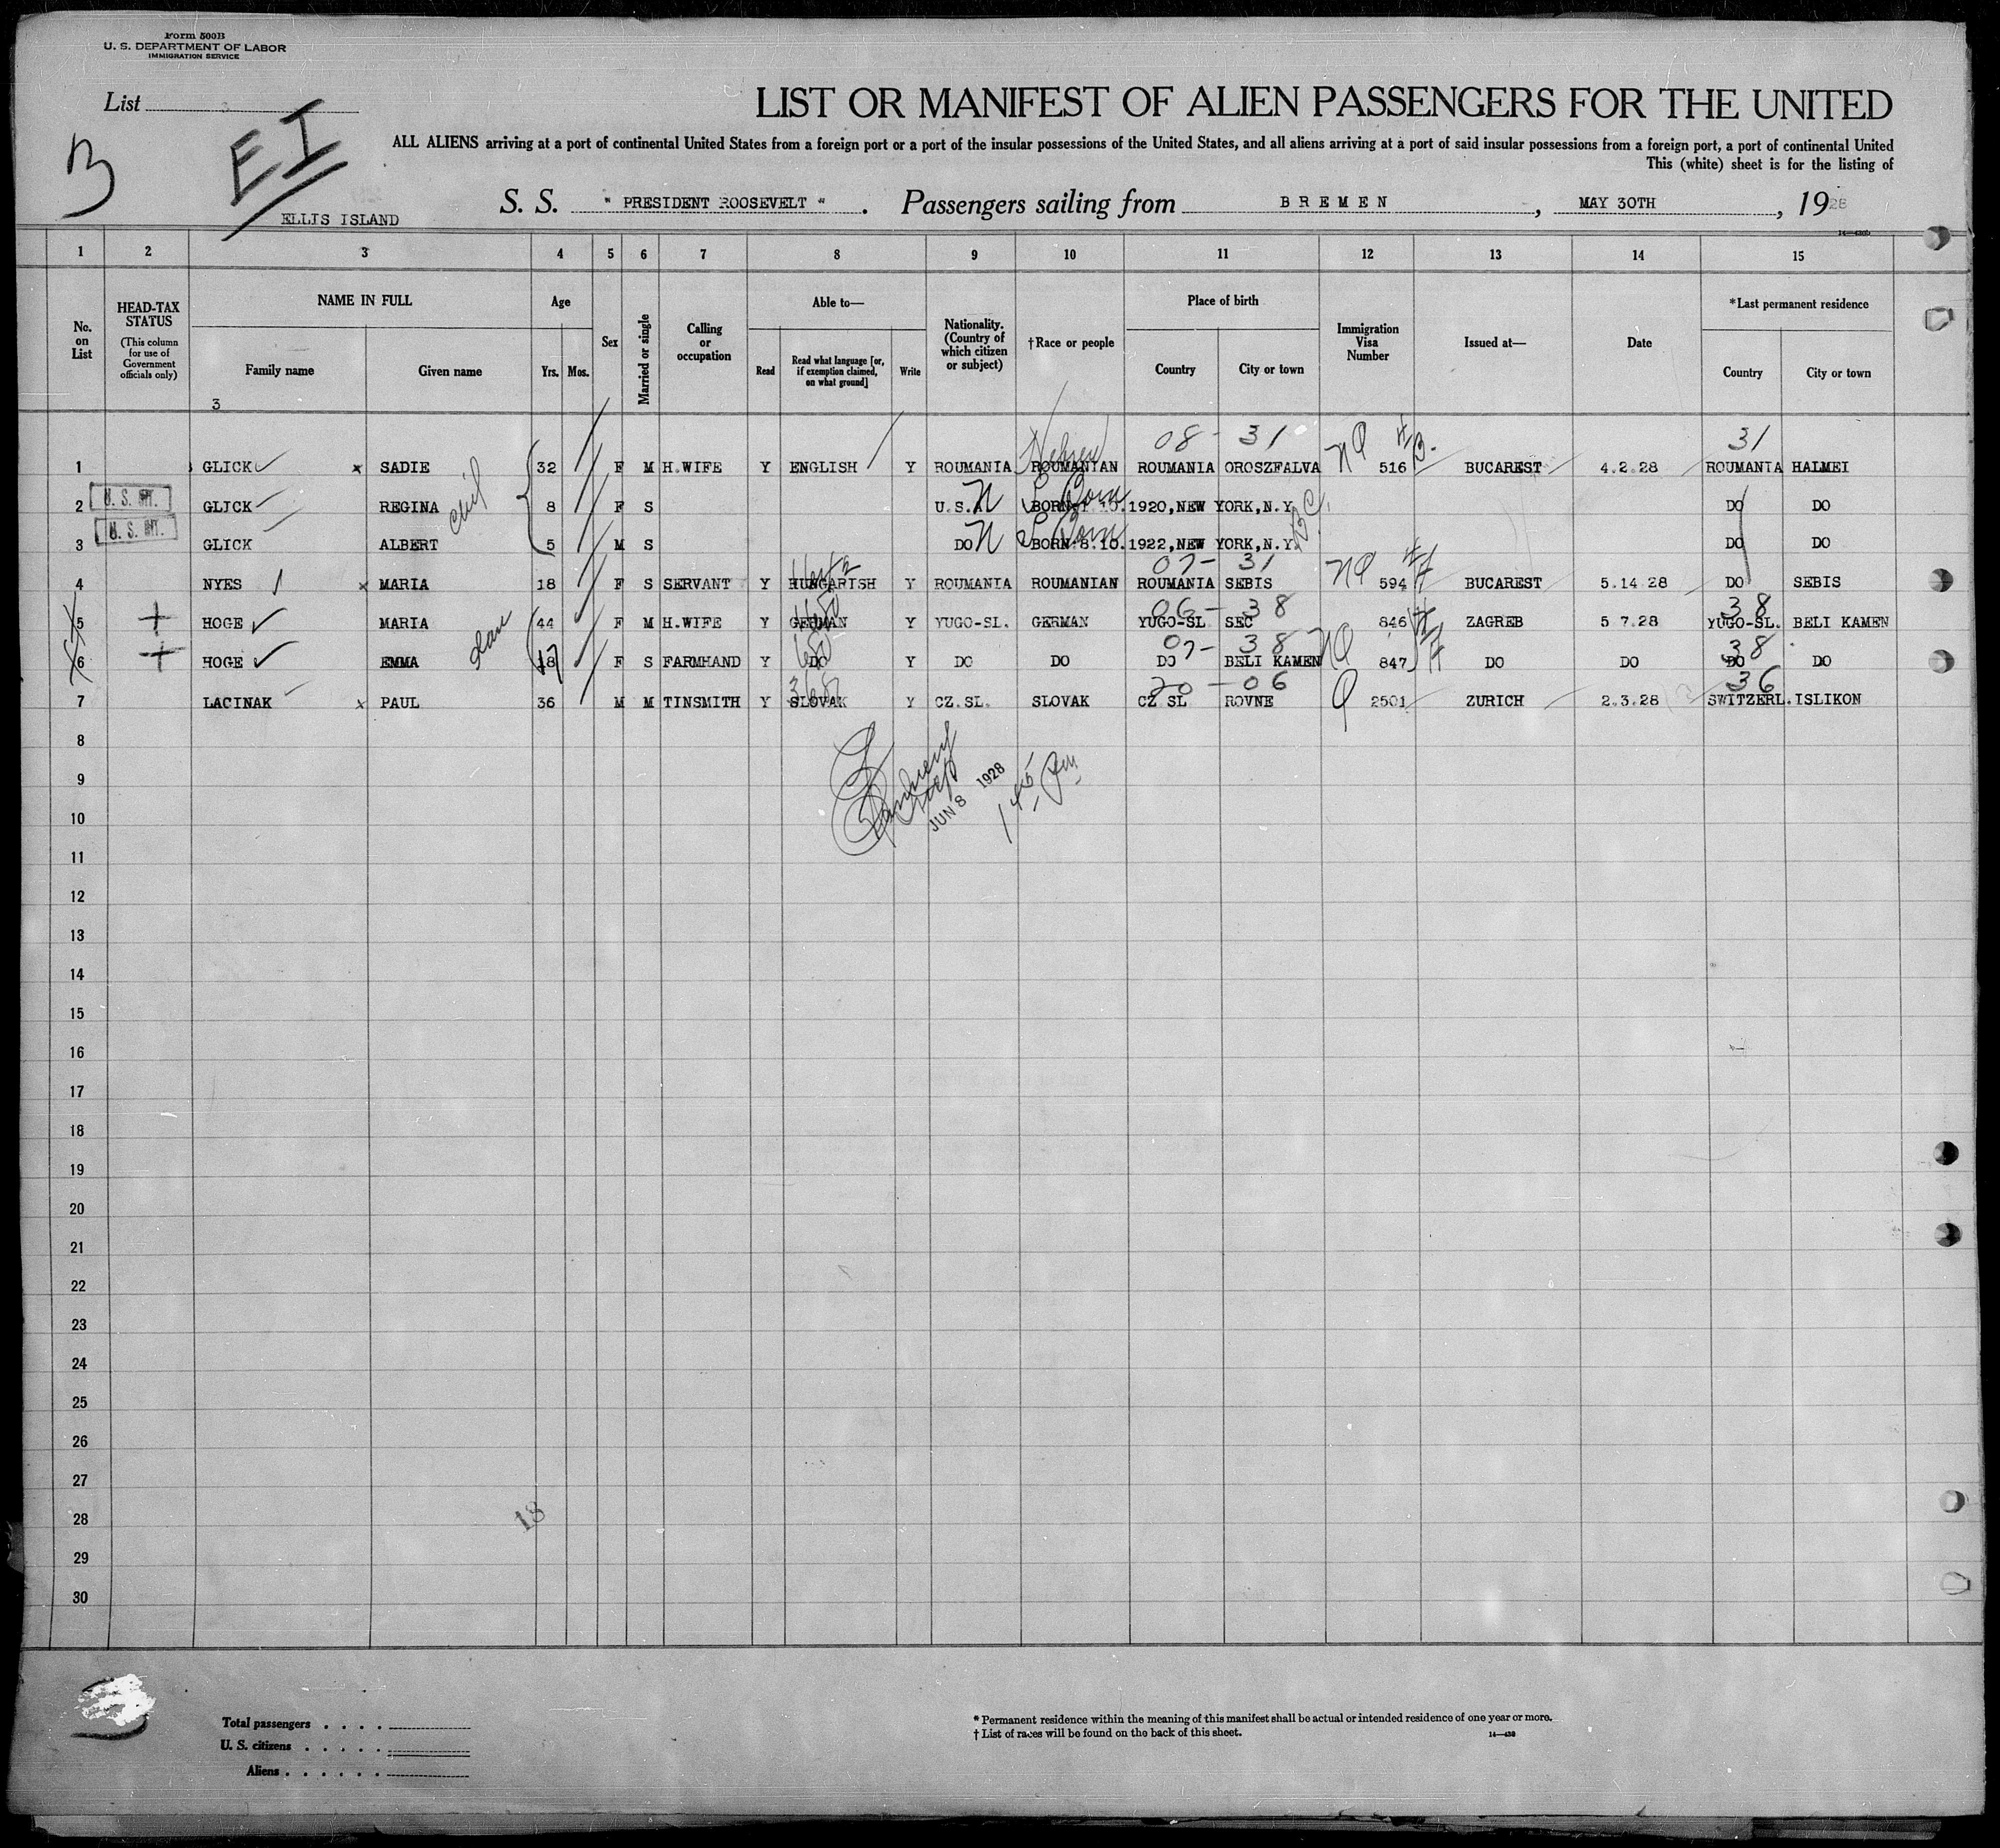 Form 500B
U. S. DEPARTMENT OF LABOR
IMMIGRATION SERVICE
List 3
3
EI
ELLIS ISLAND
LIST OR MANIFEST OF ALIEN PASSENGERS FOR THE UNITED
ALL ALIENS arriving at a port of continental United States from a foreign port or a port of the insular possessions of the United States, and all aliens arriving at a port of said insular possessions from a foreign port, a port of continental United
This (white) sheet is for the listing of
S. S. " PRESIDENT ROOSEVELT " . Passengers sailing from BREMEN , MAY 30TH , 1928
1 2 3 4 5 6 7 8 9 10 11 12 13 14 15
No. on List
HEAD-TAX STATUS
(This column for use of Government officials only)
NAME IN FULL
Family name
Given name
Age
Yrs. Mos.
Sex
Married or single
Calling or occupation
Able to—
Read
Read what language [or, if exemption claimed, on what ground]
Write
Nationality. (Country of which citizen or subject)
†Race or people
Place of birth
Country
City or town
Immigration Visa Number
Issued at—
Date
*Last permanent residence
Country
City or town
3
Hebrew 08 - 31 31
1 GLICK x SADIE 32 F M H.WIFE Y ENGLISH Y ROUMANIA ROUMANIAN ROUMANIA OROSZFALVA 516 BUCAREST 4.2.28 ROUMANIA HALMEI
2 GLICK REGINA 8 F S U.S.A. BORN 1.10.1920,NEW YORK,N.Y. DO DO
3 GLICK ALBERT 5 M S DO BORN 8.10.1922,NEW YORK,N.Y. DO DO
07 - 31
4 NYES x MARIA 18 F S SERVANT Y HUNGARISH Y ROUMANIA ROUMANIAN ROUMANIA SEBIS 594 BUCAREST 5.14 28 DO SEBIS
06 - 38 38
5 HOGE MARIA 44 F M H.WIFE Y GERMAN Y YUGO-SL. GERMAN YUGO-SL SEC 846 ZAGREB 5 7.28 YUGO-SL. BELI KAMEN
07 - 38 38
6 HOGE EMMA 18 F S FARMHAND Y DO Y DO DO DO BELI KAMEN 847 DO DO DO DO
20 - 06 36
7 LACINAK x PAUL 36 M M TINSMITH Y SLOVAK Y CZ.SL. SLOVAK CZ SL ROVNE 2501 ZURICH 2.3.28 SWITZERL. ISLIKON
8
JUN 8 1928
1 45 Pm
9
10
11
12
13
14
15
16
17
18
19
20
21
22
23
24
25
26
27
28
18
29
30
Total passengers
U. S. citizens
Aliens
* Permanent residence within the meaning of this manifest shall be actual or intended residence of one year or more.
† List of races will be found on the back of this sheet.
14—430